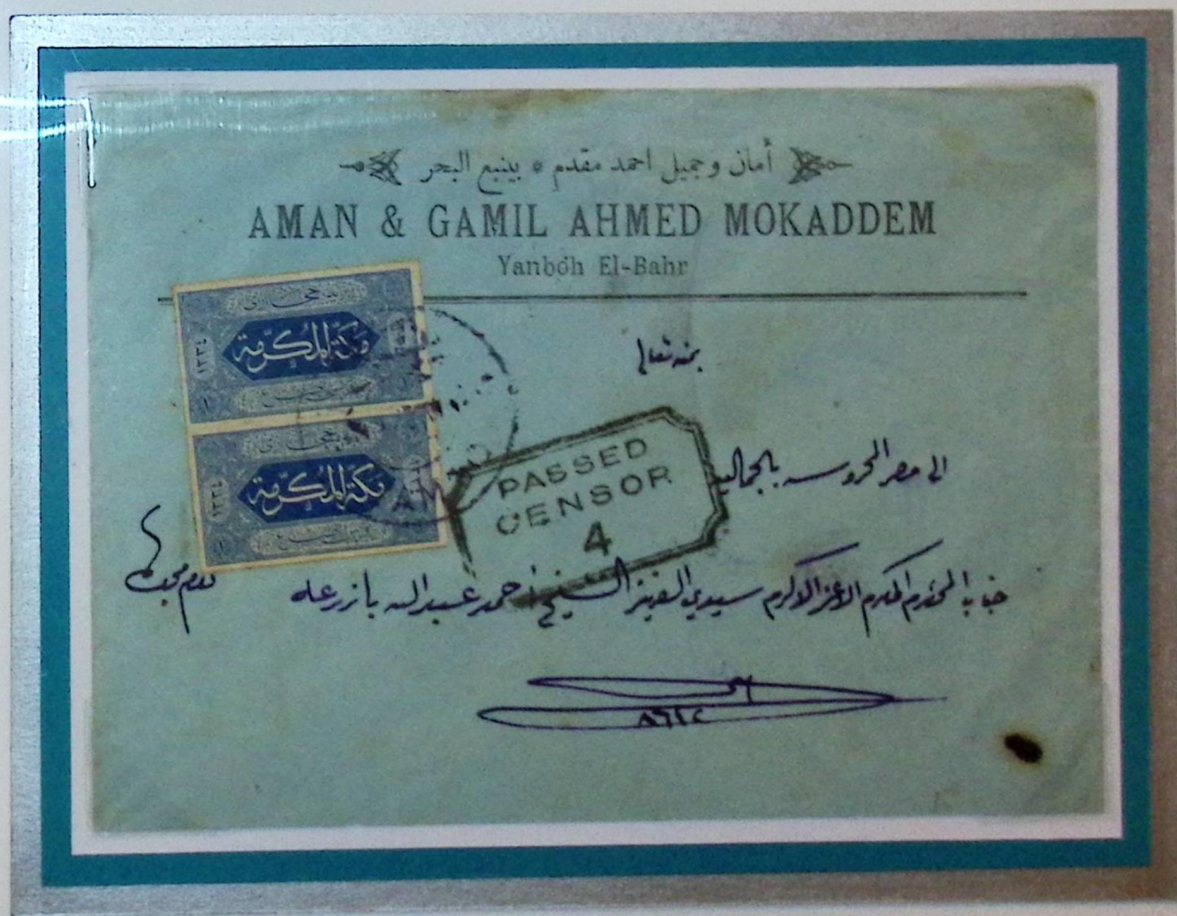 أمان وجميل احمد مقدم * بينبع البحر
AMAN & GAMIL AHMED MOKADDEM
Yanboh El-Bahr
مكة المكرمة
١٣٣٤
١
مكة المكرمة
١٣٣٤
١
بمنه تعالى
الى مصر المحروسه بالجماليه
PASSED
CENSOR
4
جناب المحترم المكرم الاعز الاكرم سيدي العزيز الشيخ احمد عبد الله بازرعه
٨٦٤٢